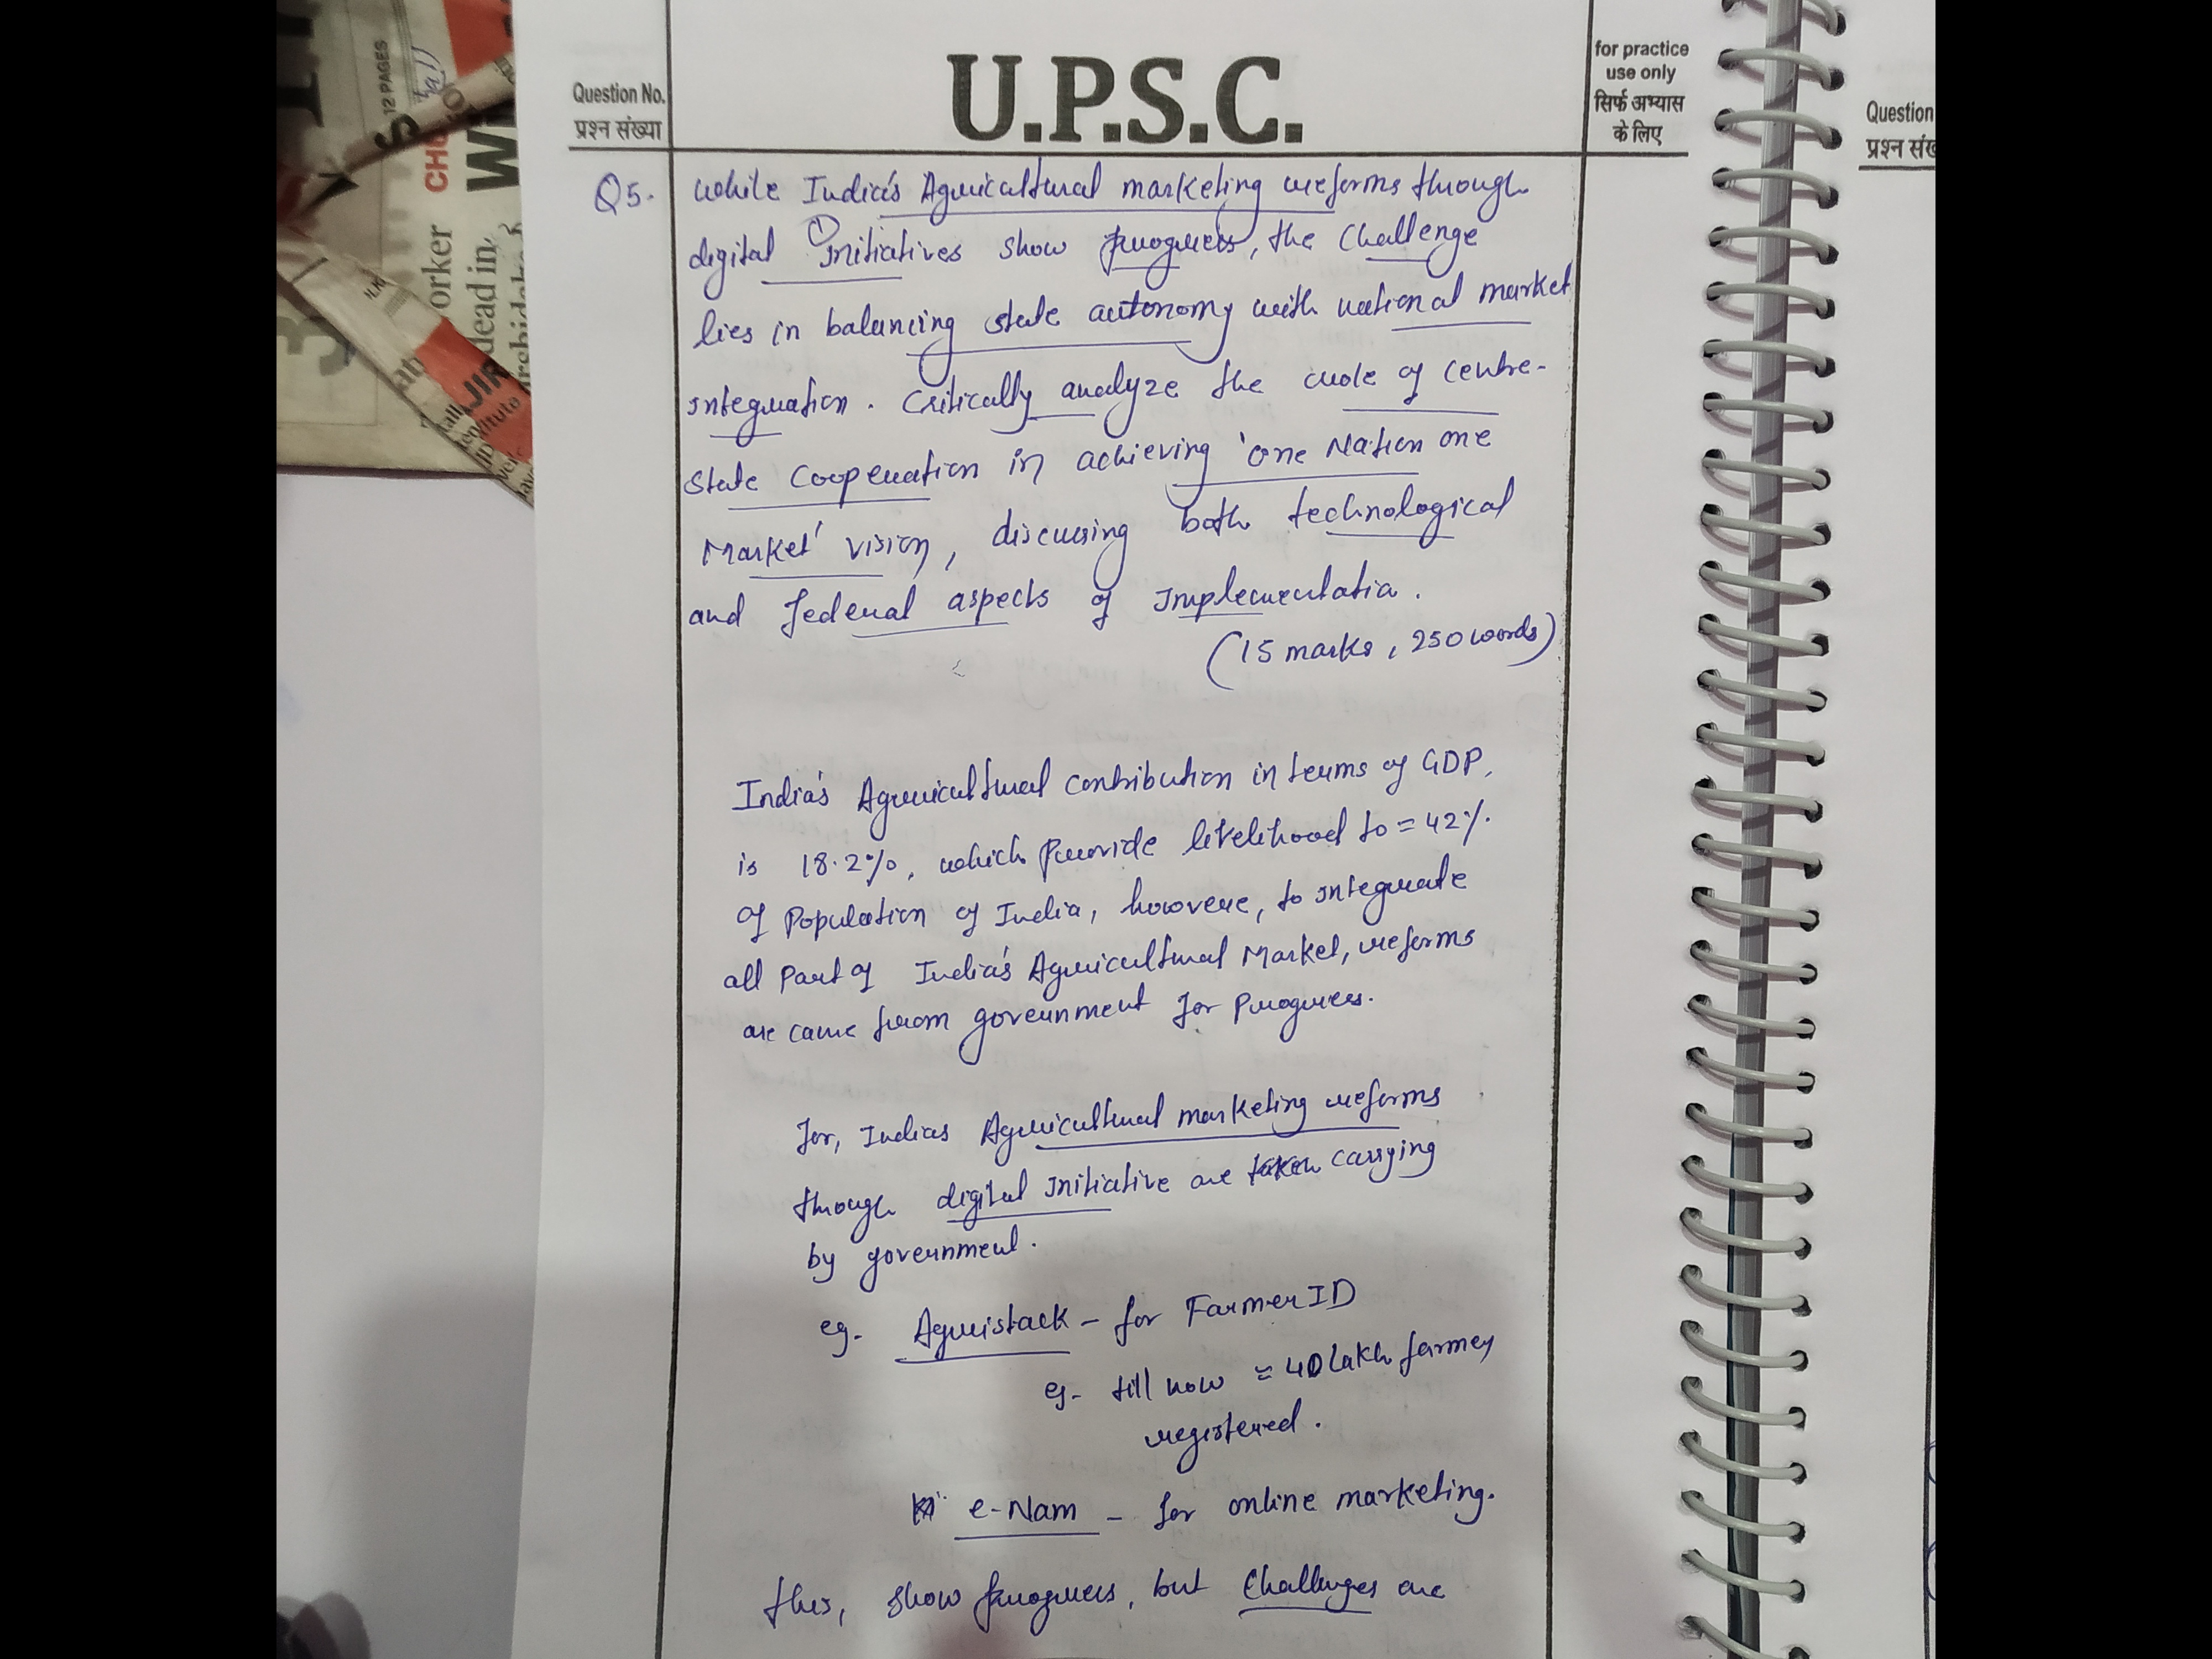 12 PAGES
orker
dead in
JIR
Question No.
प्रश्न संख्या
U.P.S.C.
for practice
use only
सिर्फ अभ्यास
के लिए
Question
Q5. While India's Agricultural marketing reforms through
digital initiatives show progress, the challenge
lies in balancing state autonomy with national market
integration. Critically analyze the role of centre-
state cooperation in achieving 'one Nation one
Market' vision, discussing both technological
and federal aspects of Implementatia.
(15 marks, 250 words)
India's Agricultural contribution in terms of GDP,
is 18.2%, which Provide livelihood to = 42%.
of Population of India, howevere, to integrate
all Part of India's Agricultural Market, reforms
are came from government for Progress.
for, Indias Agricultural marketing reforms
through digital initiative are carrying
by government.
eg. Agristack - for Farmer ID
eg- till now ≈ 40 lakh farmer
registered.
e-Nam - for online marketing.
this, show progress, but challenges are